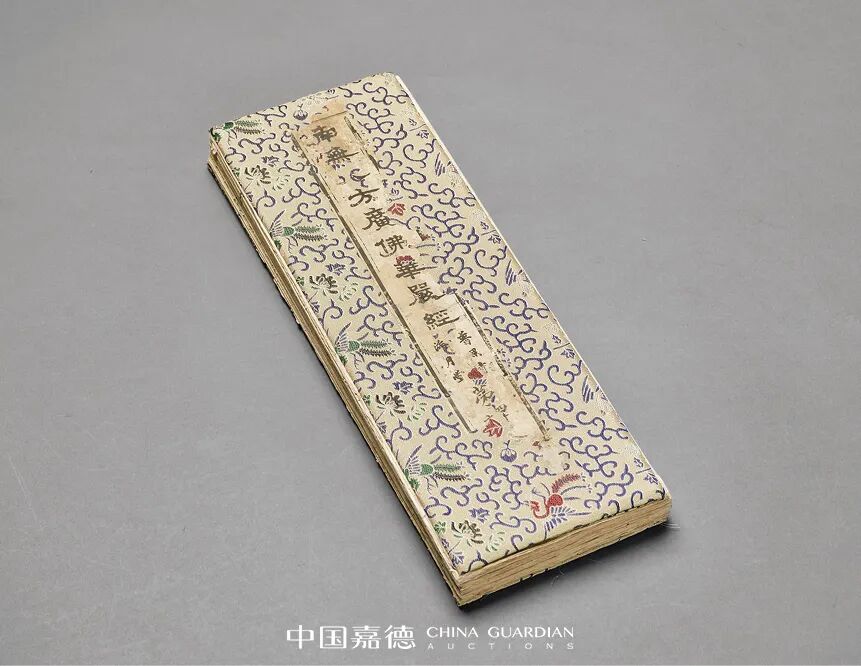 南無大方廣佛華嚴經
中国嘉德 CHINA GUARDIAN
AUCTIONS